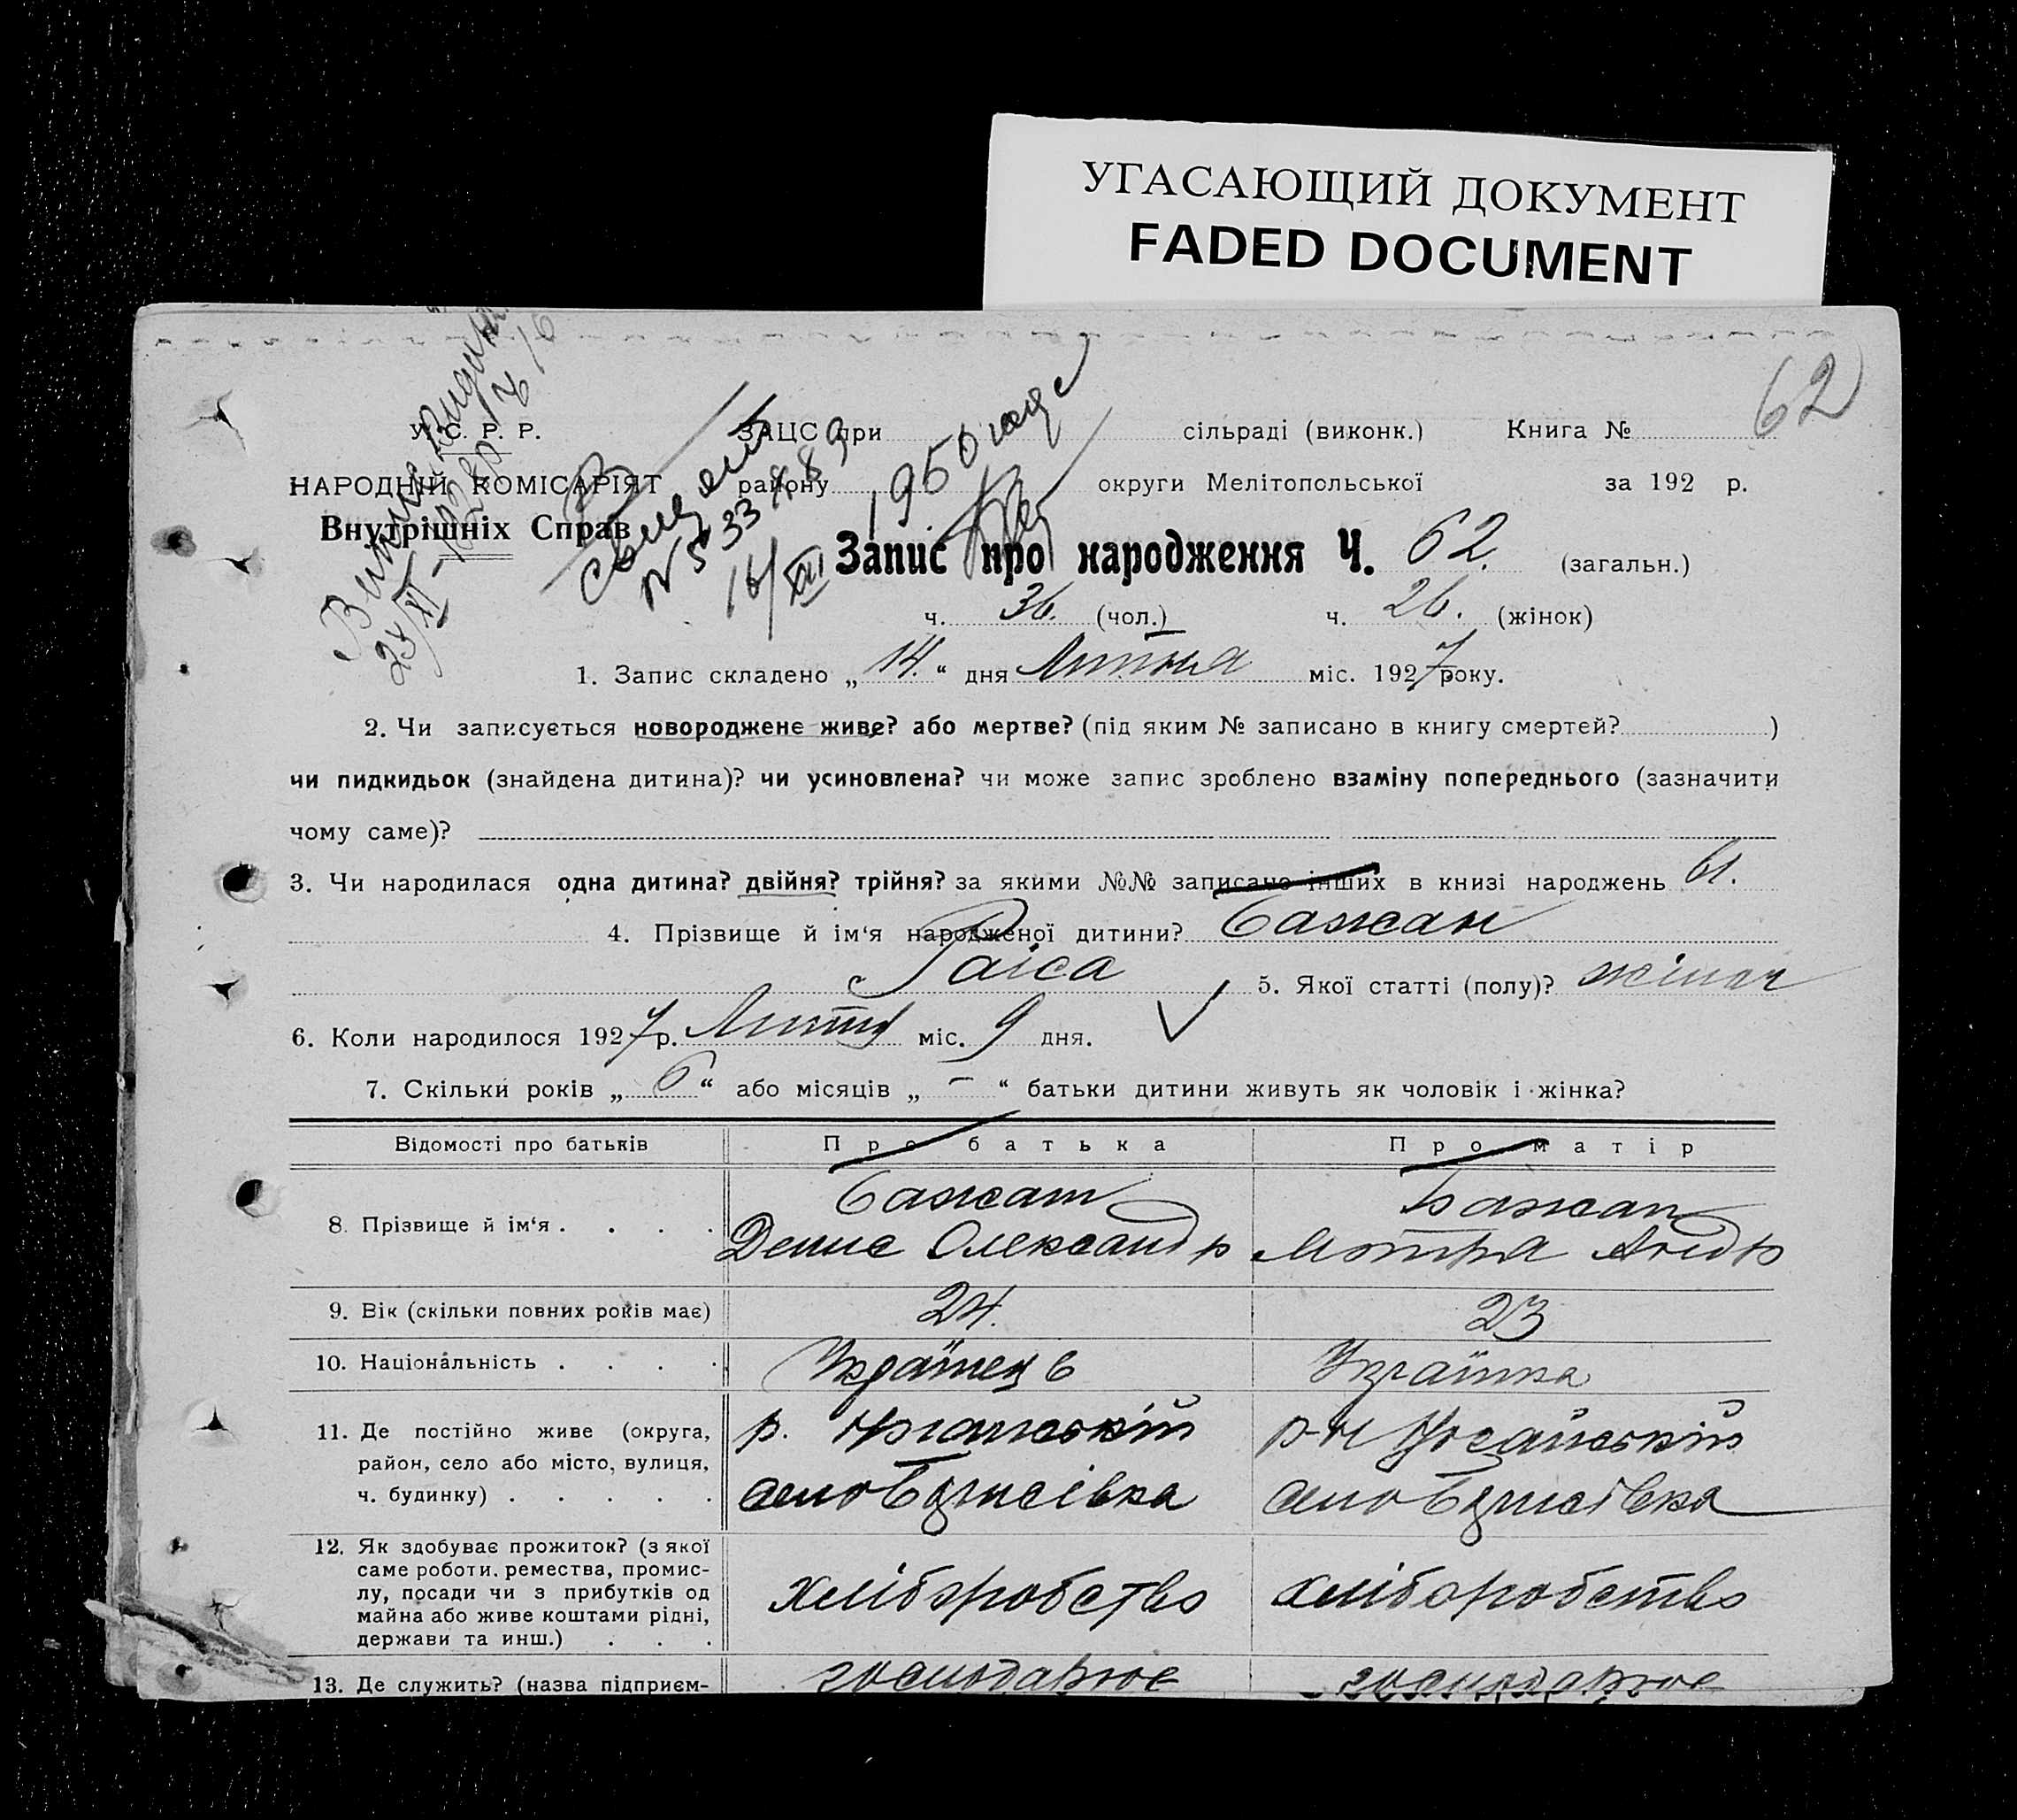 УГАСАЮЩИЙ ДОКУМЕНТ
FADED DOCUMENT
62
У. С. Р. Р.
НАРОДНІЙ КОМІСАРІЯТ
Внутрішніх Справ
ЗАЦС при сільраді (виконк.) Книга №
району округи Мелітопольської за 192 р.
1950
16/XII
Запис про народження Ч. 62. (загальн.)
ч. 36. (чол.) ч. 26. (жінок)
1. Запис складено „14.“ дня Лютня міс. 1927 року.
2. Чи записується новороджене живе? або мертве? (під яким № записано в книгу смертей? )
чи пидкидьок (знайдена дитина)? чи усиновлена? чи може запис зроблено взаміну попереднього (зазначити
чому саме)?
3. Чи народилася одна дитина? двійня? трійня? за якими №№ записано інших в книзі народжень 61.
4. Прізвище й ім‘я народженої дитини? Бажан
Раіса 5. Якої статті (полу)? жіноч
6. Коли народилося 1927 р. Лютня міс. 9 дня.
7. Скільки років „6“ або місяців „-“ батьки дитини живуть як чоловік і жінка?
Відомості про батьків Про батька Про матір
8. Прізвище й ім‘я . . . . Бажан Бажан
Денис Олександр Мотря Андр
9. Вік (скільки повних років має) 24. 23
10. Національність . . . . Українець Українка
11. Де постійно живе (округа, р. р-н
район, село або місто, вулиця,
ч. будинку) . . . . . село Борисівка село Борисівка
12. Як здобуває прожиток? (з якої
саме роботи. ремества, промис-
лу, посади чи з прибутків од хліборобство хліборобство
майна або живе коштами рідні,
держави та инш.) . . .
13. Де служить? (назва підприєм- господарює господарює